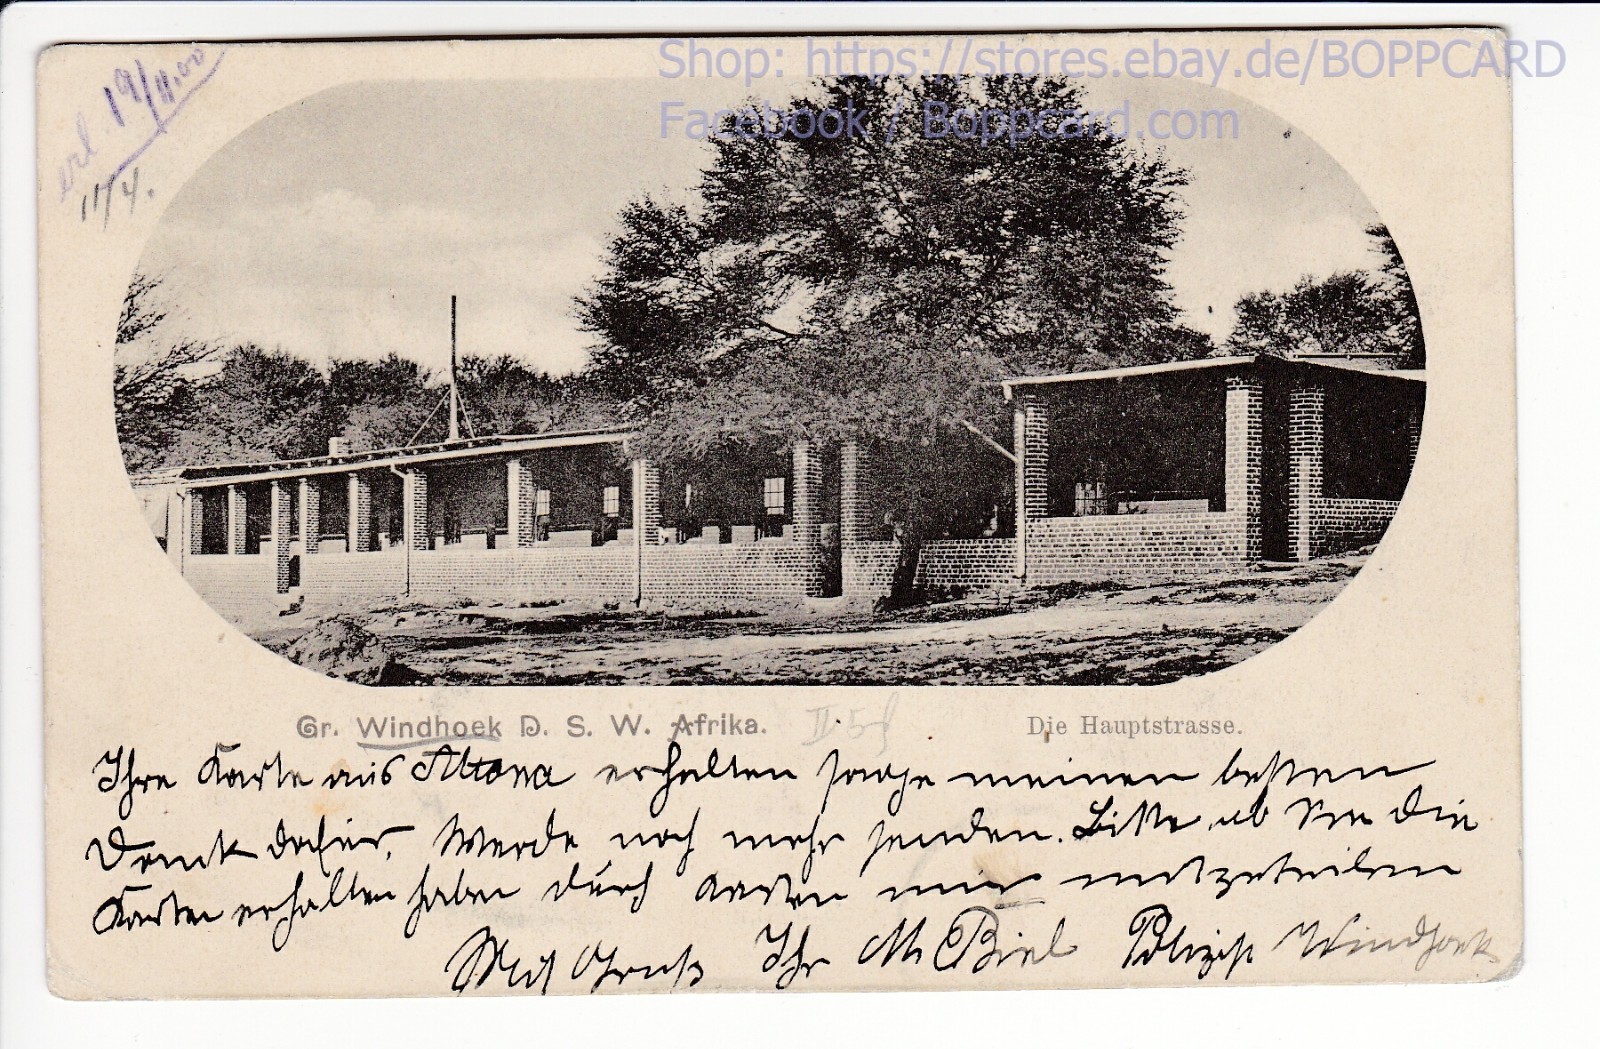 Shop: https://stores.ebay.de/BOPPCARD
Facebook / Boppcard.com
erl. 19/11.00
11/4.
Gr. Windhoek D. S. W. Afrika.
Die Hauptstrasse.
Ihre Karte aus Altona erhalten sage meinen besten
Dank dafür. Werde noch mehr senden. Bitte ob Sie die
Karten erhalten haben durch Karten mir mitzuteilen
Mit Gruß Ihr M Biel Polizist Windhoek